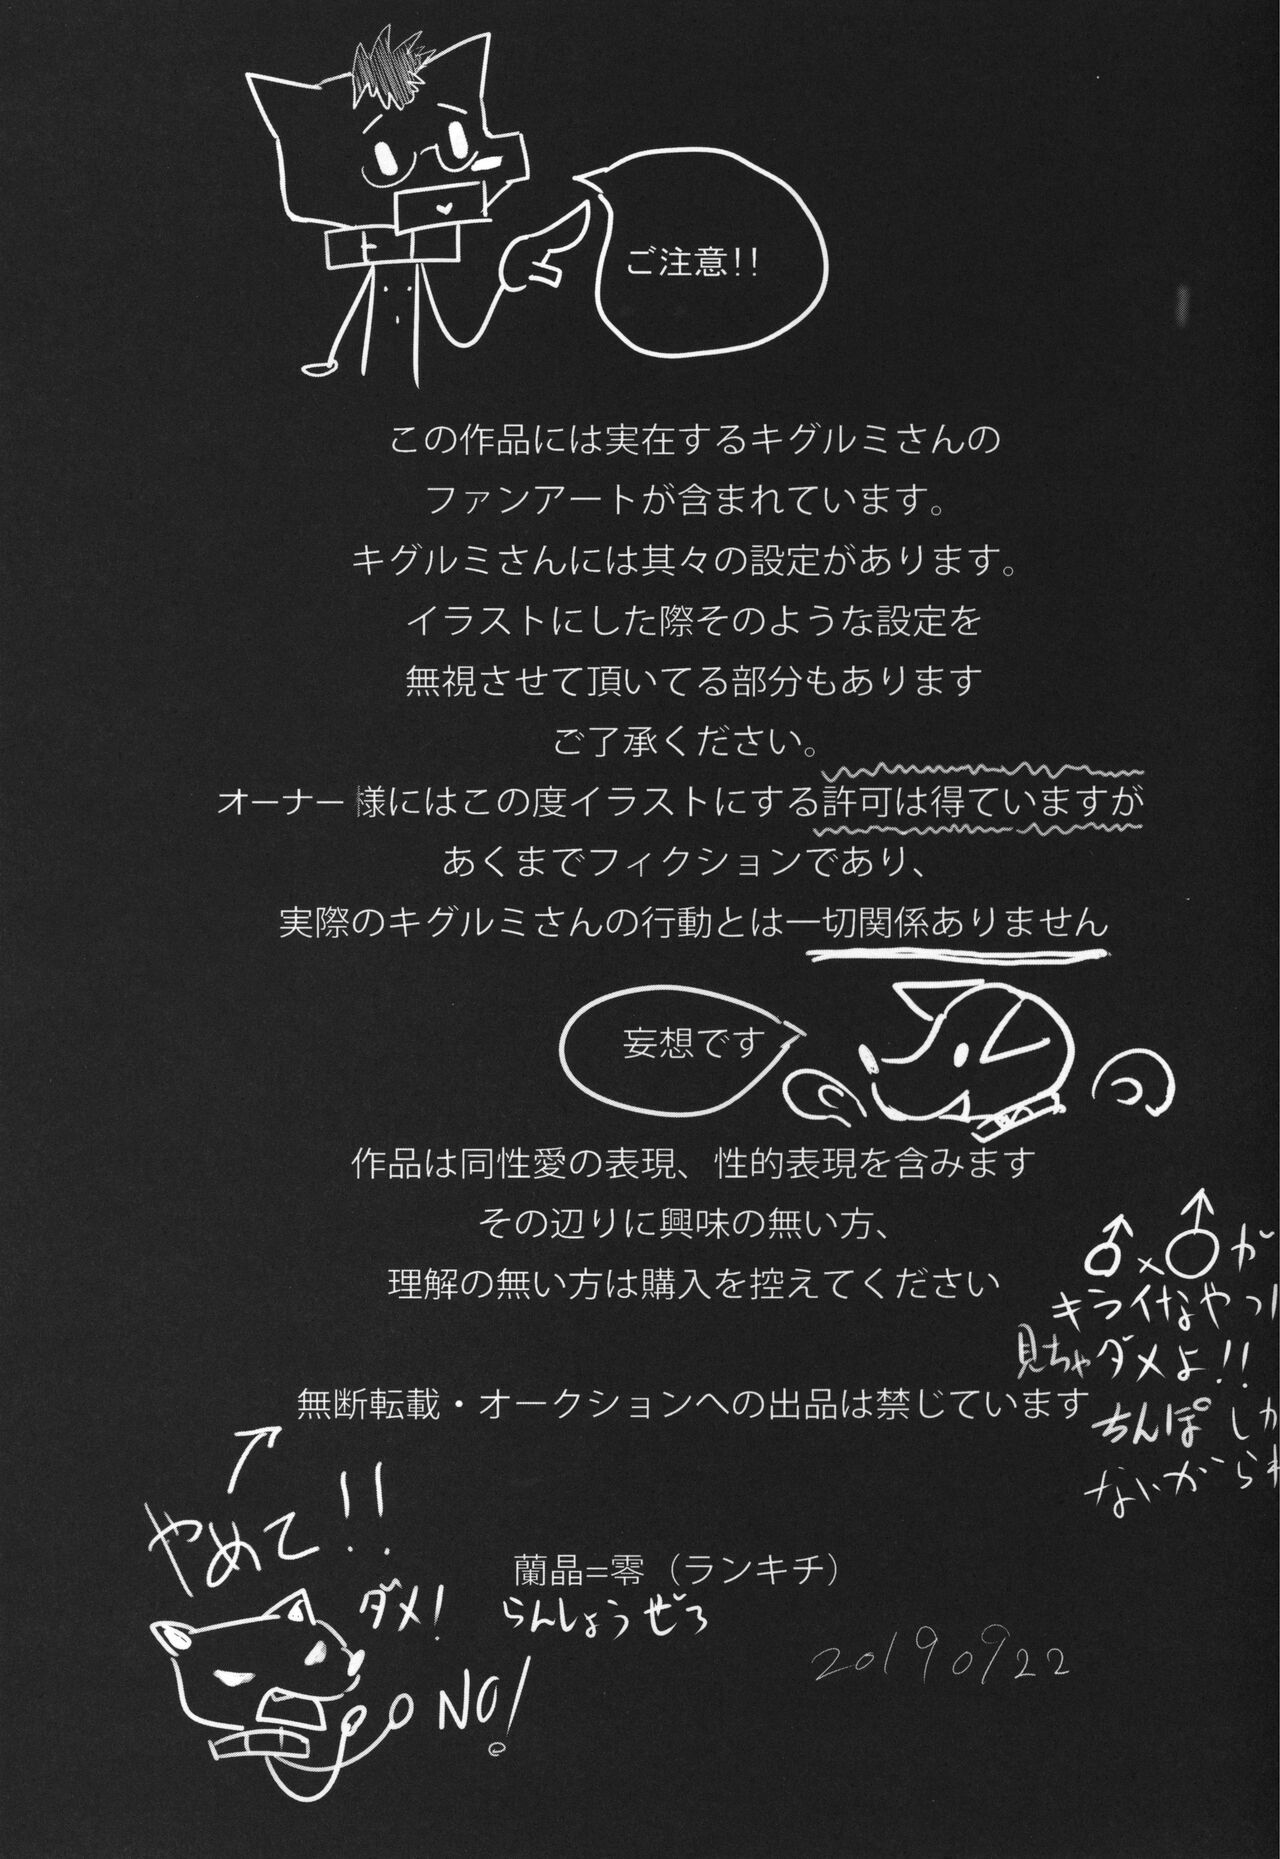 ご注意!!
この作品には実在するキグルミさんの
ファンアートが含まれています。
キグルミさんには其々の設定があります。
イラストにした際そのような設定を
無視させて頂いてる部分もあります
ご了承ください。
オーナー様にはこの度イラストにする許可は得ていますが
あくまでフィクションであり、
実際のキグルミさんの行動とは一切関係ありません
妄想です
作品は同性愛の表現、性的表現を含みます
その辺りに興味の無い方、
理解の無い方は購入を控えてください
♂×♂が
キライなやつは
見ちゃダメよ!!
ちんぽしか
ないからね
無断転載・オークションへの出品は禁じています
やめて!!
ダメ!
NO!
蘭晶=零（ランキチ）
らんしょうぜろ
20190922